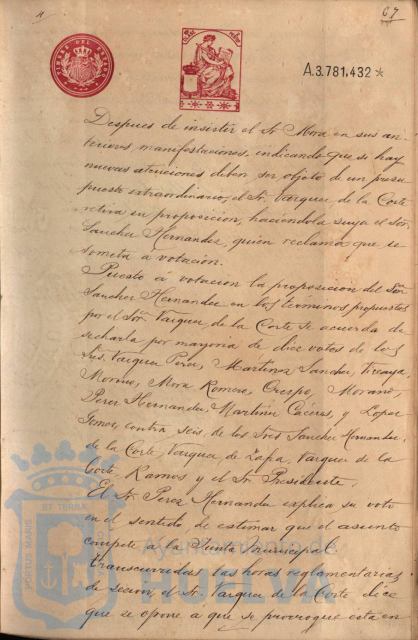 67
A.3.781,432*
Despues de insistir el Sr. Mora en sus an-
teriores manifestaciones, indicando que si hay
nuevas atenciones deben ser objeto de un presu
puesto extraordinario, el Sr. Vazquez de la Corte
retira su proposicion, haciendola suya el Sor.
Sanchez Hernandez, quien reclama que se
someta á votacion.
Puesto á votacion la proposicion del Sor.
Sanchez Hernandez en los términos propuestos
por el Sor. Vazquez de la Corte se acuerda de
secharla por mayoria de diez votos de los
Sres. Vazquez Perez, Martinez Sanchez, Vizcaya,
Moreno, Mora Romero, Crespo, Morano,
Perez Hernandez, Martin Cáceres, y Lopez
Gomez, contra seis, de los Sres Sanchez Hernandez,
de la Corte, Vazquez de Zafra, Vazquez de la
Corte, Ramos y el Sr. Presidente.
El Sr. Perez Hernandez explica su voto
en el sentido de estimar que el asunto
compete á la Junta municipal.
Transcurridas las horas reglamentarias
de sesion, el Sr. Vazquez de la Corte dice
que se opone a que se prorrogue esta en
PORTUS MARIS ET TERRAE
Ayuntamiento de
HUELVA